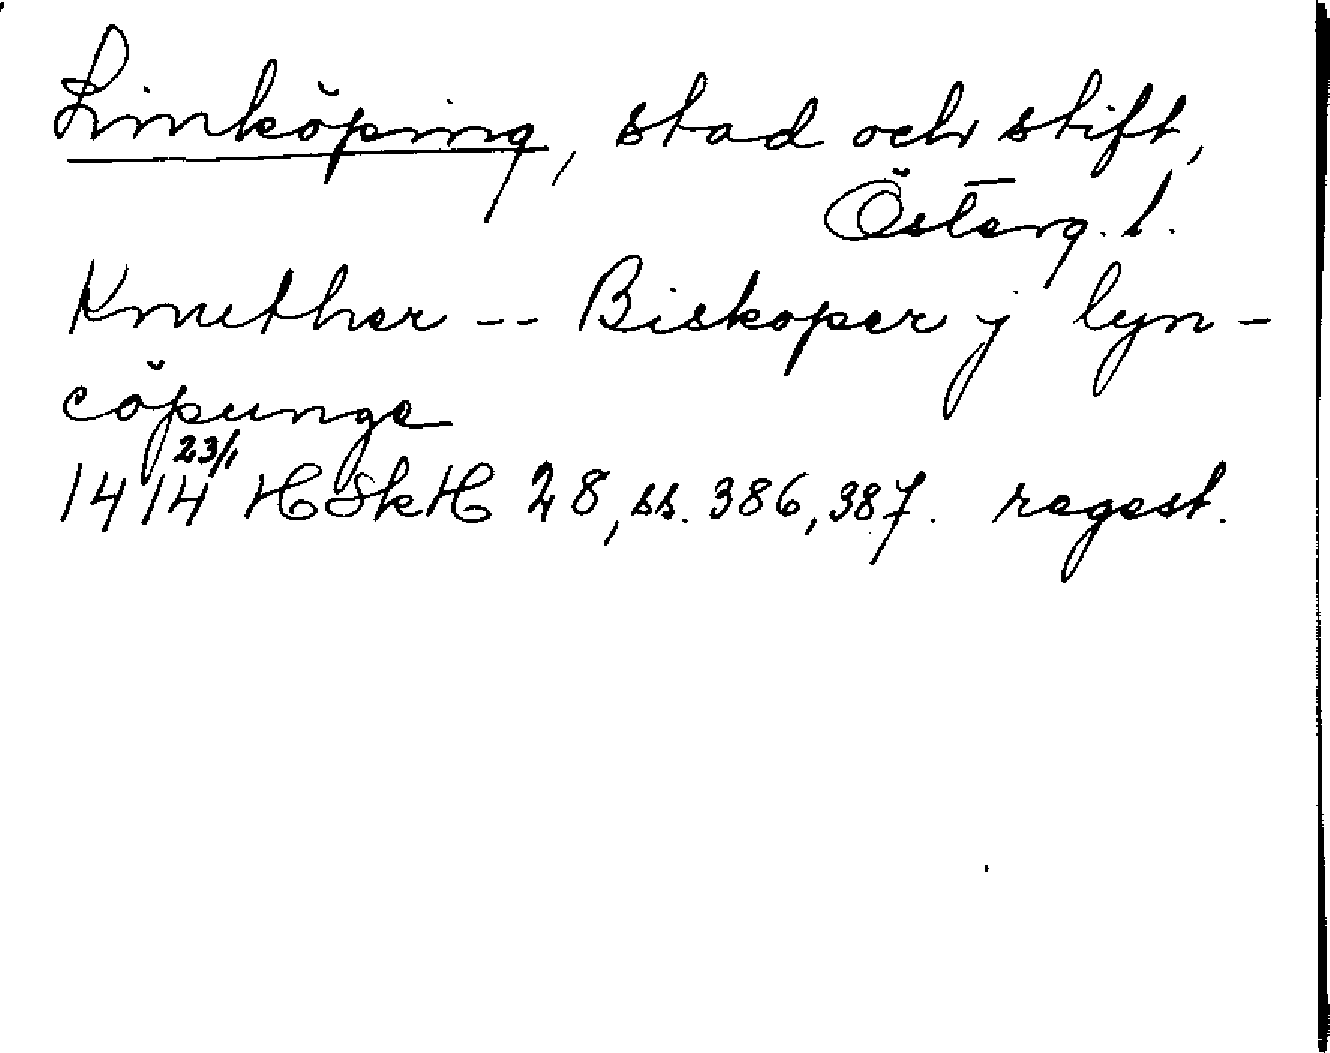 Linköping, stad och stift,
Österg. l.
Knuther -- Biskoper j lyn-
cöpunge
1414 23/1 HSkH 28, ss. 386, 387. regest.